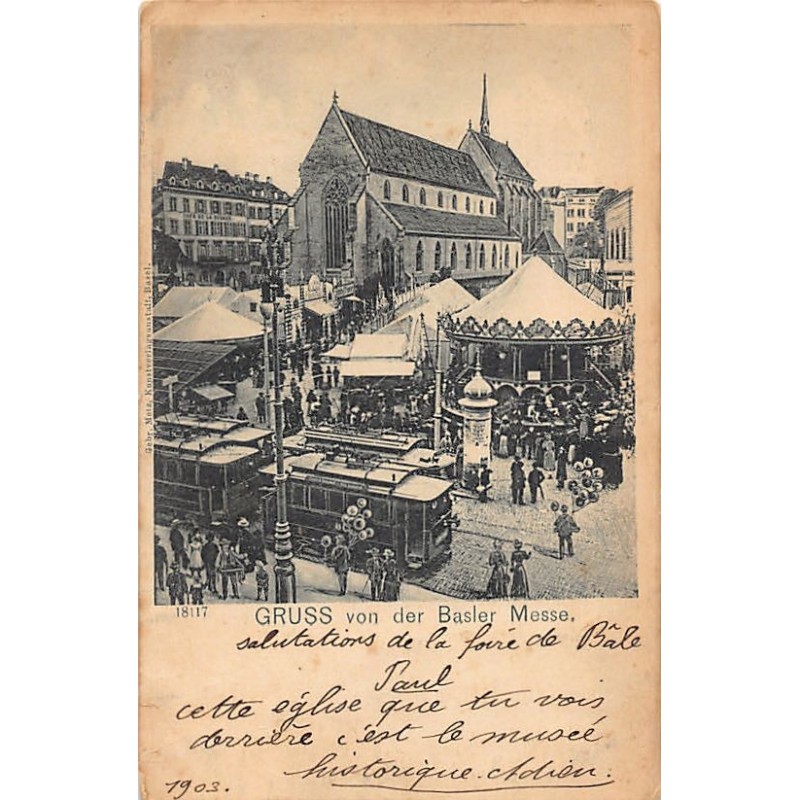 Gebr. Metz, Kunstverlagsanstalt, Basel.
18117
GRUSS von der Basler Messe.
salutations de la foire de Bâle
Paul
cette église que tu vois
derrière c'est le musée
historique. Adieu.
1903.